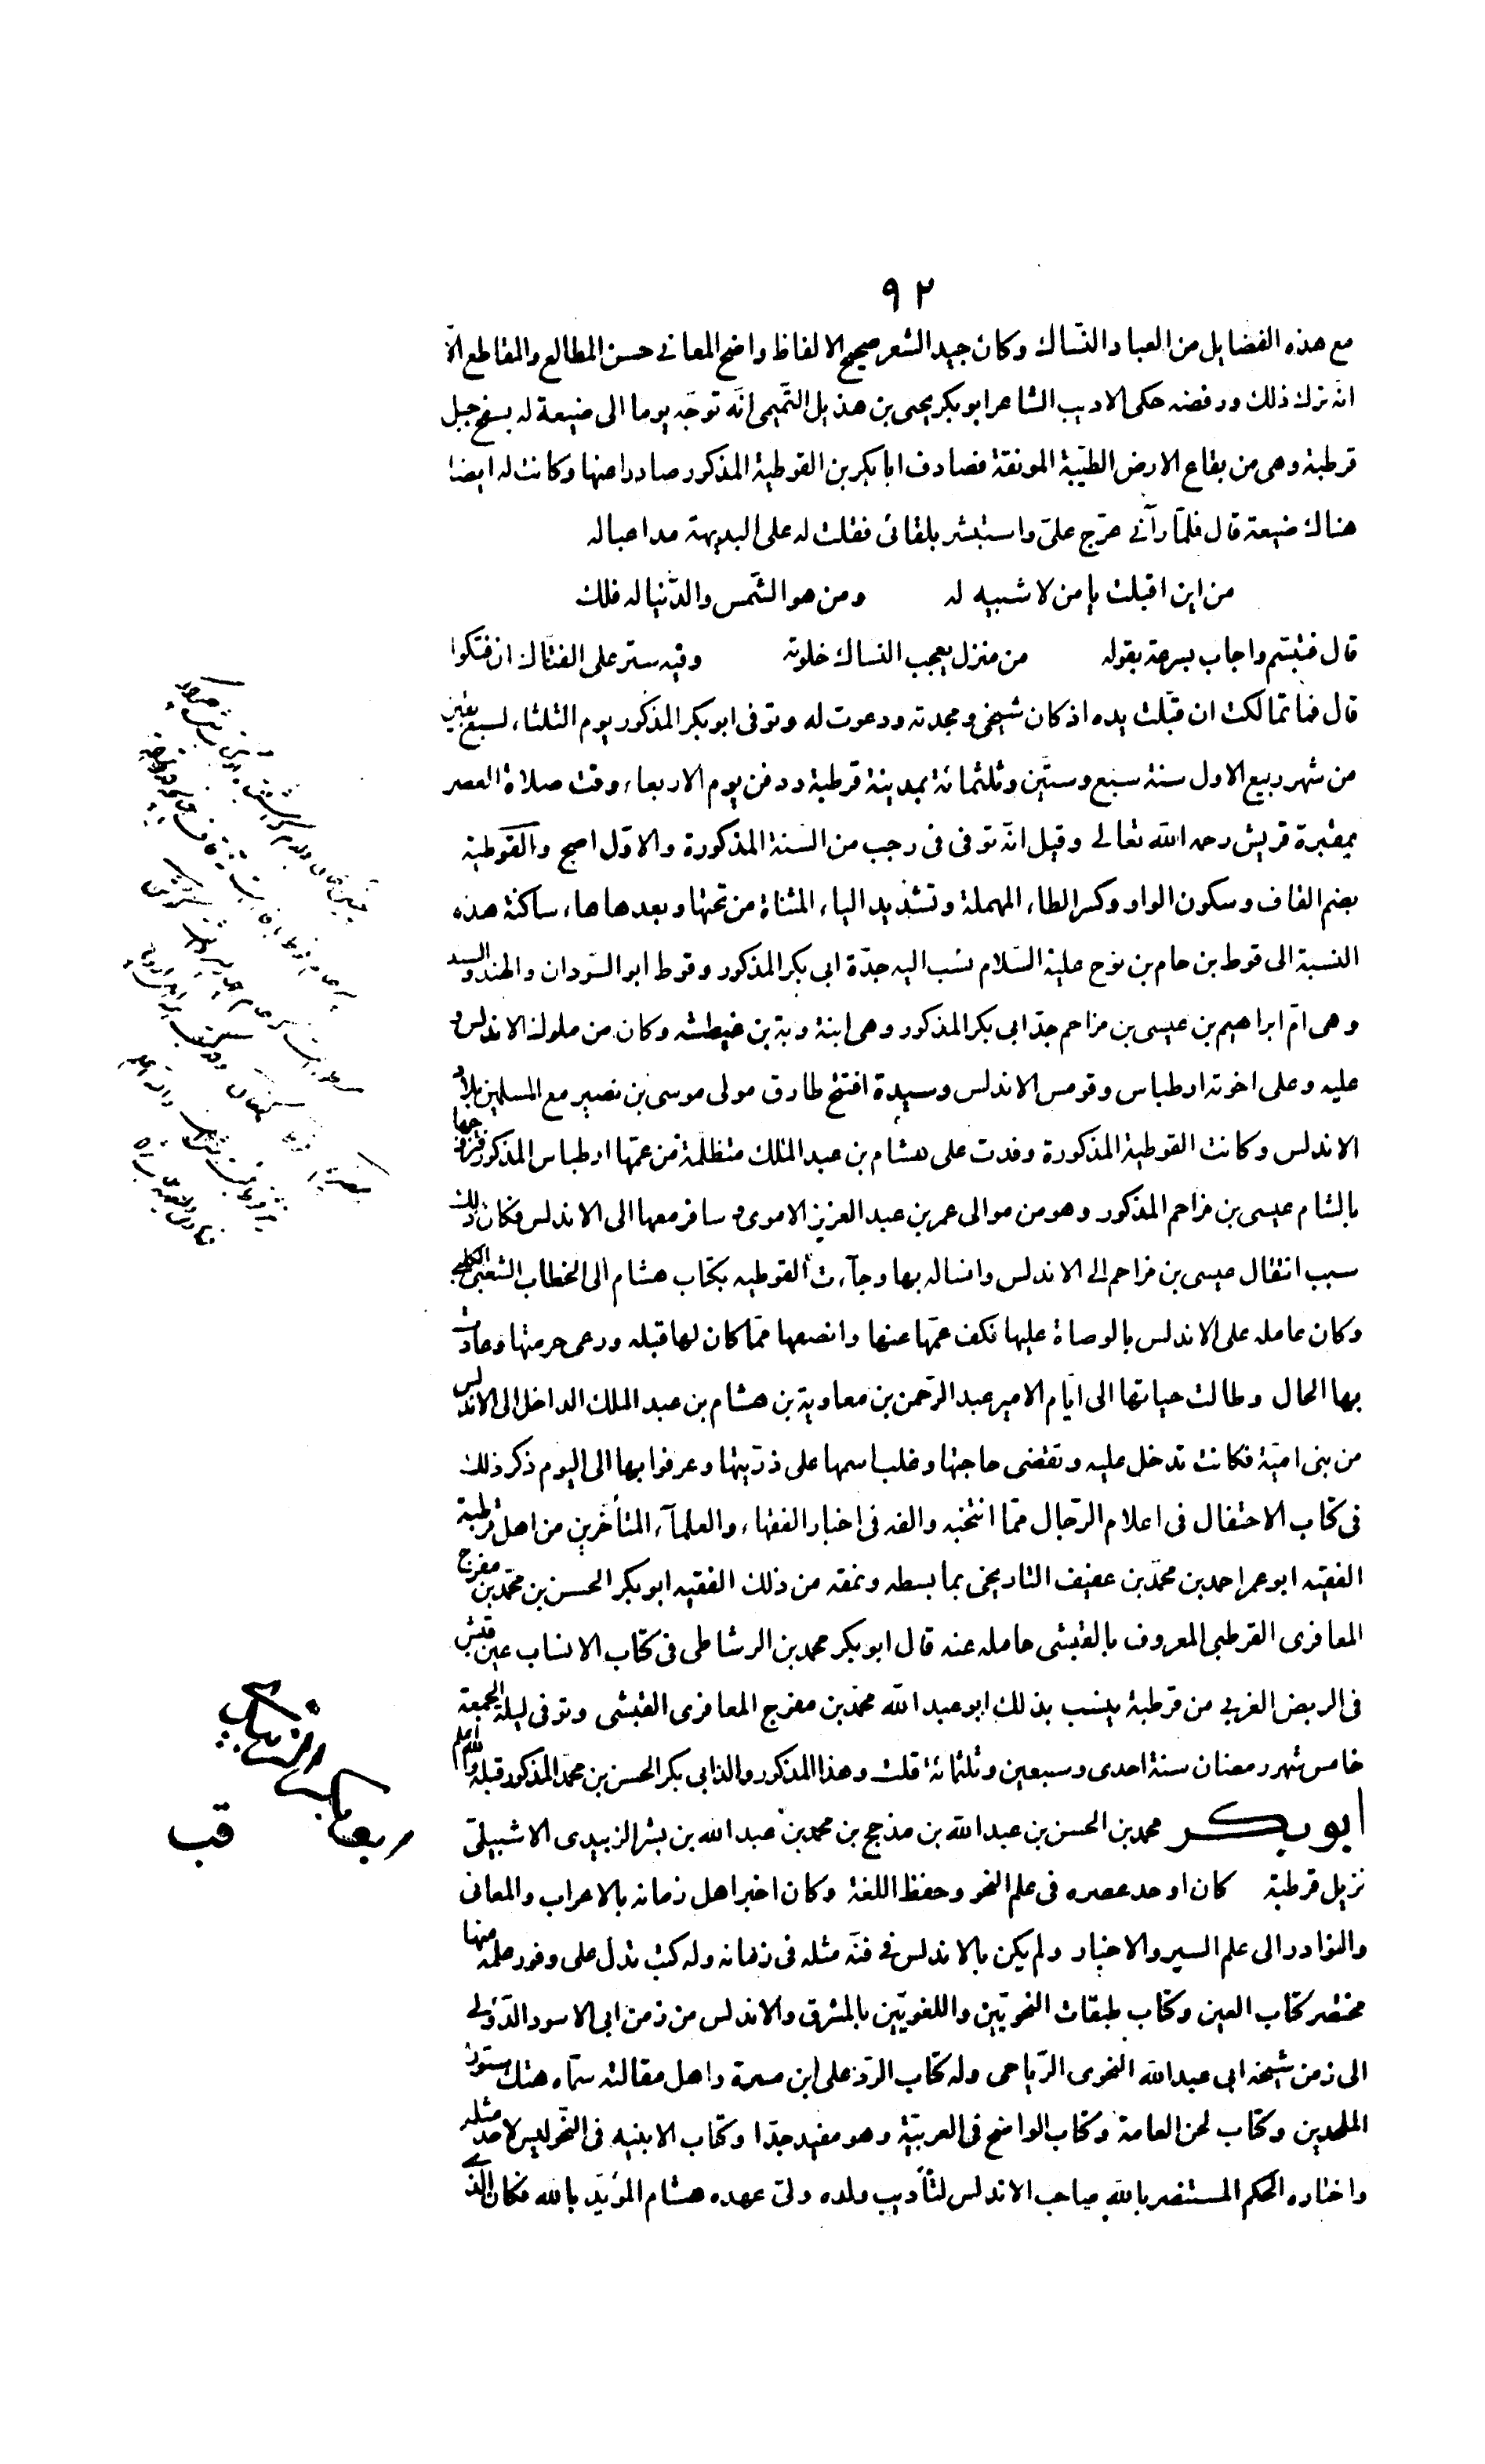 ٩٢
مع هذه الفضايل من العباد النسّاك وكان جيد الشعر صحيح الالفاظ واضح المعانى حسن المطالع والمقاطع الّا
انه ترك ذلك ورفضه حكى الاديب الشاعر ابو بكر يحيى بن هذيل التّميمى انّه توجّه يوما الى ضيعة له بسفح جبل
قرطبة وهى من بقاع الارض الطيّبة المونقة فصادف ابا بكر بن القوطية المذكور صادرا عنها وكانت له ايضا
هناك ضيعة قال فلمّا رآنى عرّج علىّ واستبشر بلقائى فقلت له على البديهة مداعبا له
من اين اقبلت يا من لا شبيه له ومن هو الشّمس والدّنيا له فلك
قال فتبسّم واجاب بسرعة بقوله من منزل يعجب النساك خلوته وفيه ستر على الفتّاك ان فتكوا
قال فما تمالكت ان قبّلت يده اذ كان شيخى ومجدته ودعوت له وتوفى ابو بكر المذكور يوم الثلثاء لسبع بقين
من شهر ربيع الاول سنة سبع وستّين وثلثمائة بمدينة قرطبة ودفن يوم الاربعاء وقت صلاة العصر
بمقبرة قريش رحه اللّه تعالى وقيل انّه توفى فى رجب من السّنة المذكورة والاوّل اصح والقوطية
بضم القاف وسكون الواو وكسر الطاء المهملة وتشديد الياء المثناة من تحتها وبعدها هاء ساكنة هذه
النسبة الى قوط بن حام بن نوح عليه السّلام نسب اليه جدّة ابى بكر المذكور وقوط ابو السّودان والهند والسند
وهى امّ ابراهيم بن عيسى بن مزاحم جدّ ابى بكر المذكور وهى ابنة وبة بن غيطشه وكان من ملوك الاندلس و
عليه وعلى اخوته ارطباس وقومس الاندلس وسيدة افتتح طارق مولى موسى بن نصير مع المسلمين بلاد
الاندلس وكانت القوطية المذكورة وفدت على هشام بن عبد الملك متظلّمة من عمّها ارطباس المذكور فتزوجها
بالشام عيسى بن مزاحم المذكور وهو من موالى عمر بن عبد العزيز الاموى و سافر معها الى الاندلس فكان ذلك
سبب انتقال عيسى بن مزاحم الى الاندلس وانساله بها وجآءت القوطيه بكتاب هشام الى الخطاب الشعبى الكلبى
وكان عامله على الاندلس بالوصاة عليها فكف عمّها عنها وانصفها ممّا كان لها قبله ورعى حرمتها وعادت
بها الحال وطالت حياتها الى ايّام الامير عبد الرّحمن بن معاوية بن هشام بن عبد الملك الداخل الى الاندلس
من بنى اميّة فكانت تدخل عليه وتقضى حاجتها وغلب اسمها على ذرّيتها وعرفوا بها الى اليوم ذكر ذلك
فى كتاب الاحتفال فى اعلام الرّجال ممّا انتخبه والفه فى اخبار الفقهاء والعلمآء المتأخّرين من اهل قرطبة
الفقيه ابو عمر احمد بن محمّد بن عفيف التاريخى بما بسطه ونمقه من ذلك الفقيه ابو بكر الحسن بن محمّد بن مفرج
المعافرى القرطبى المعروف بالقبشى حامله عنه قال ابو بكر محمد بن الرشاطى فى كتاب الانساب عين قبش
فى الربض الغربى من قرطبة ينسب بذلك ابو عبد اللّه محمّد بن مفرج المعافرى القبشى وتوفى ليلة الجمعة
خامس شهر رمضان سنة احدى وسبعين وثلثمائة قلت وهذا المذكور والد ابى بكر الحسن بن محمّد المذكور قبله واللّه اعلم
ابو بكر محمد بن الحسن بن عبد اللّه بن مذحج بن محمد بن عبد اللّه بن بشر الزبيدى الاشبيلىّ
نزيل قرطبة كان اوحد عصره فى علم النحو وحفظ اللغة وكان اخبر اهل زمانه بالاعراب والمعانى
والنوادر الى علم السير والاخبار ولم يكن بالاندلس فى فنّه مثله فى زمانه وله كتب تدلّ على وفور علمه منها
مختصر كتاب العين وكتاب طبقات النحويّين واللغويّين بالمشرق والاندلس من زمن ابى الاسود الدّؤلى
الى زمن شيخه ابى عبد اللّه النحوى الرّياحى وله كتاب الردّ على ابن مسرة واهل مقالته سمّاه هتك ستور
الملحدين وكتاب لحن العامة وكتاب الواضح فى العربيّة وهو مفيد جدّا وكتاب الابنيه فى النّحو ليس لاحد مثله
واختاره الحكم المستنصر باللّه صاحب الاندلس لتأديب ولده ولىّ عهده هشام المؤيّد باللّه فكان الذى
قب